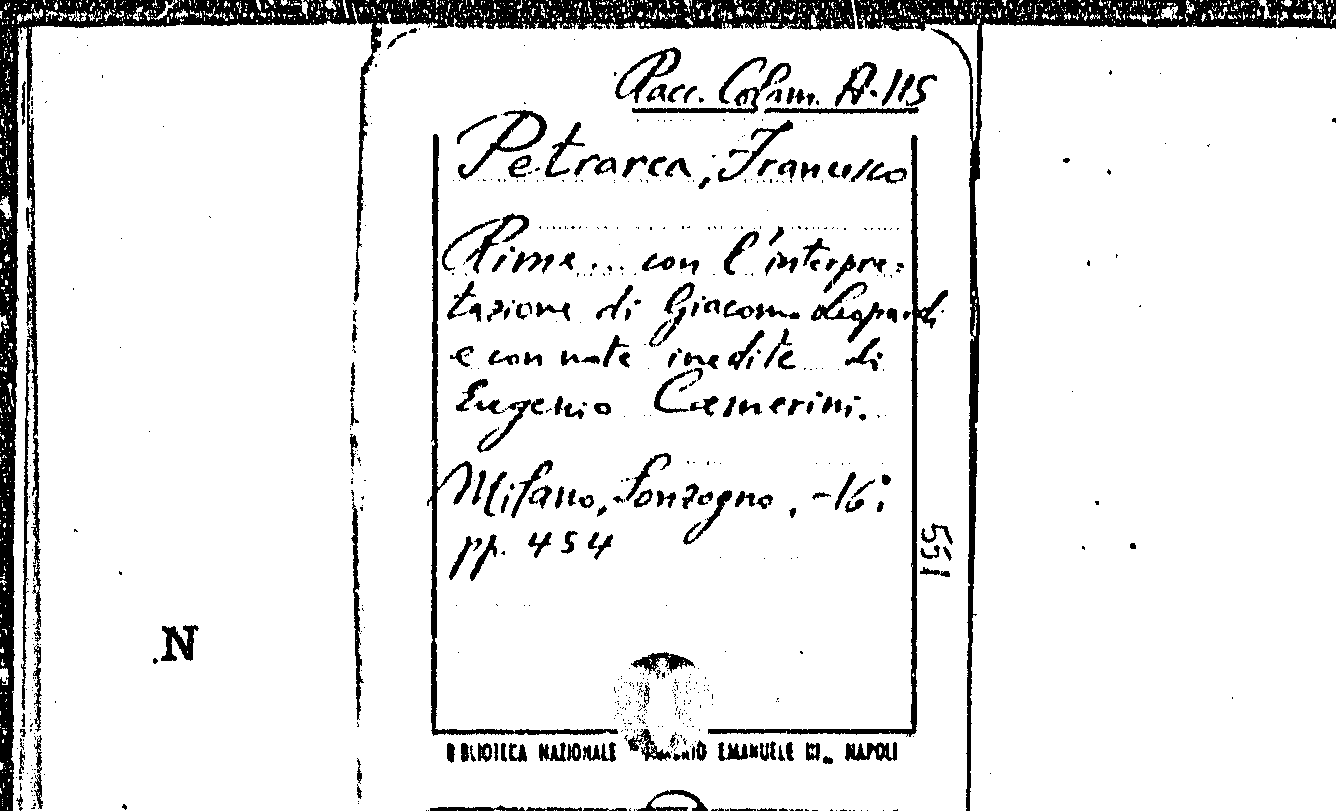 Racc. Colam. A-115
Petrarca, Francesco
Rime... con l'interpre-
tazione di Giacomo Leopardi
e con note inedite di
Eugenio Camerini.
Milano, Sonzogno, -16:
pp. 454
551
N
BIBLIOTECA NAZIONALE EMANUELE III, NAPOLI